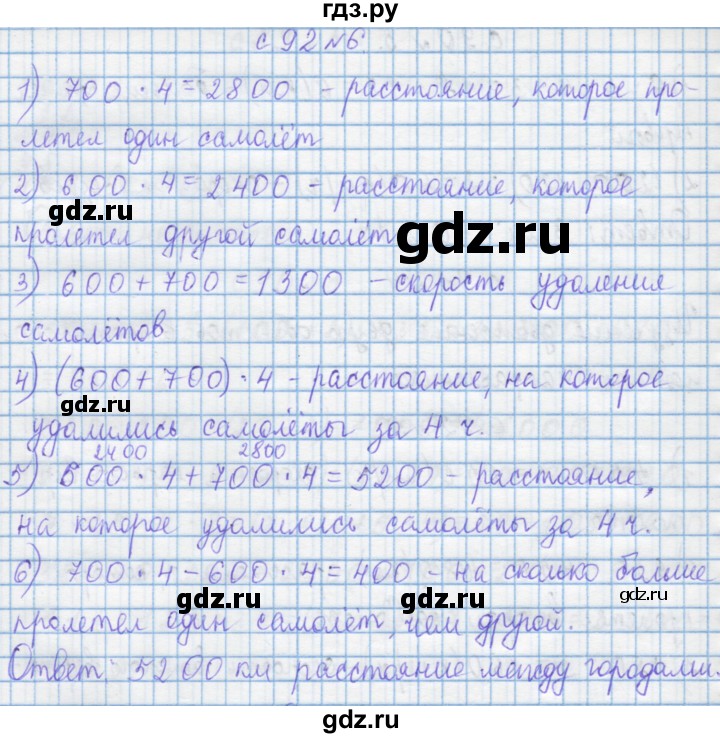 гдз.ру
с 92 №6
1) 700 · 4 = 2800 – расстояние, которое про-
летел один самолёт
2) 600 · 4 = 2400 – расстояние, которое
gdz.ru
пролетел другой самолёт
gdz.ru
3) 600 + 700 = 1300 – скорость удаления
gdz.ru
самолётов
4) (600 + 700) · 4 – расстояние, на которое
gdz.ru
удалились самолёты за 4 ч.
2400 2800
5) 600 · 4 + 700 · 4 = 5200 – расстояние,
на которое удалились самолёты за 4 ч.
6) 700 · 4 – 600 · 4 = 400 – на сколько больше
gdz.ru
gdz.ru
пролетел один самолёт, чем другой.
Ответ: 5200 км расстояние между городами.
gdz.ru